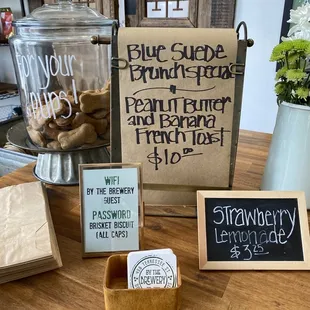 For your
Pups!
Blue Suede
Brunch special
Peanut Butter
and Banana
French Toast
$10
WIFI
BY THE BREWERY
GUEST
PASSWORD
BRISKET BISCUIT
(ALL CAPS)
Strawberry
Lemonade
$3.25
BY THE
BREWERY